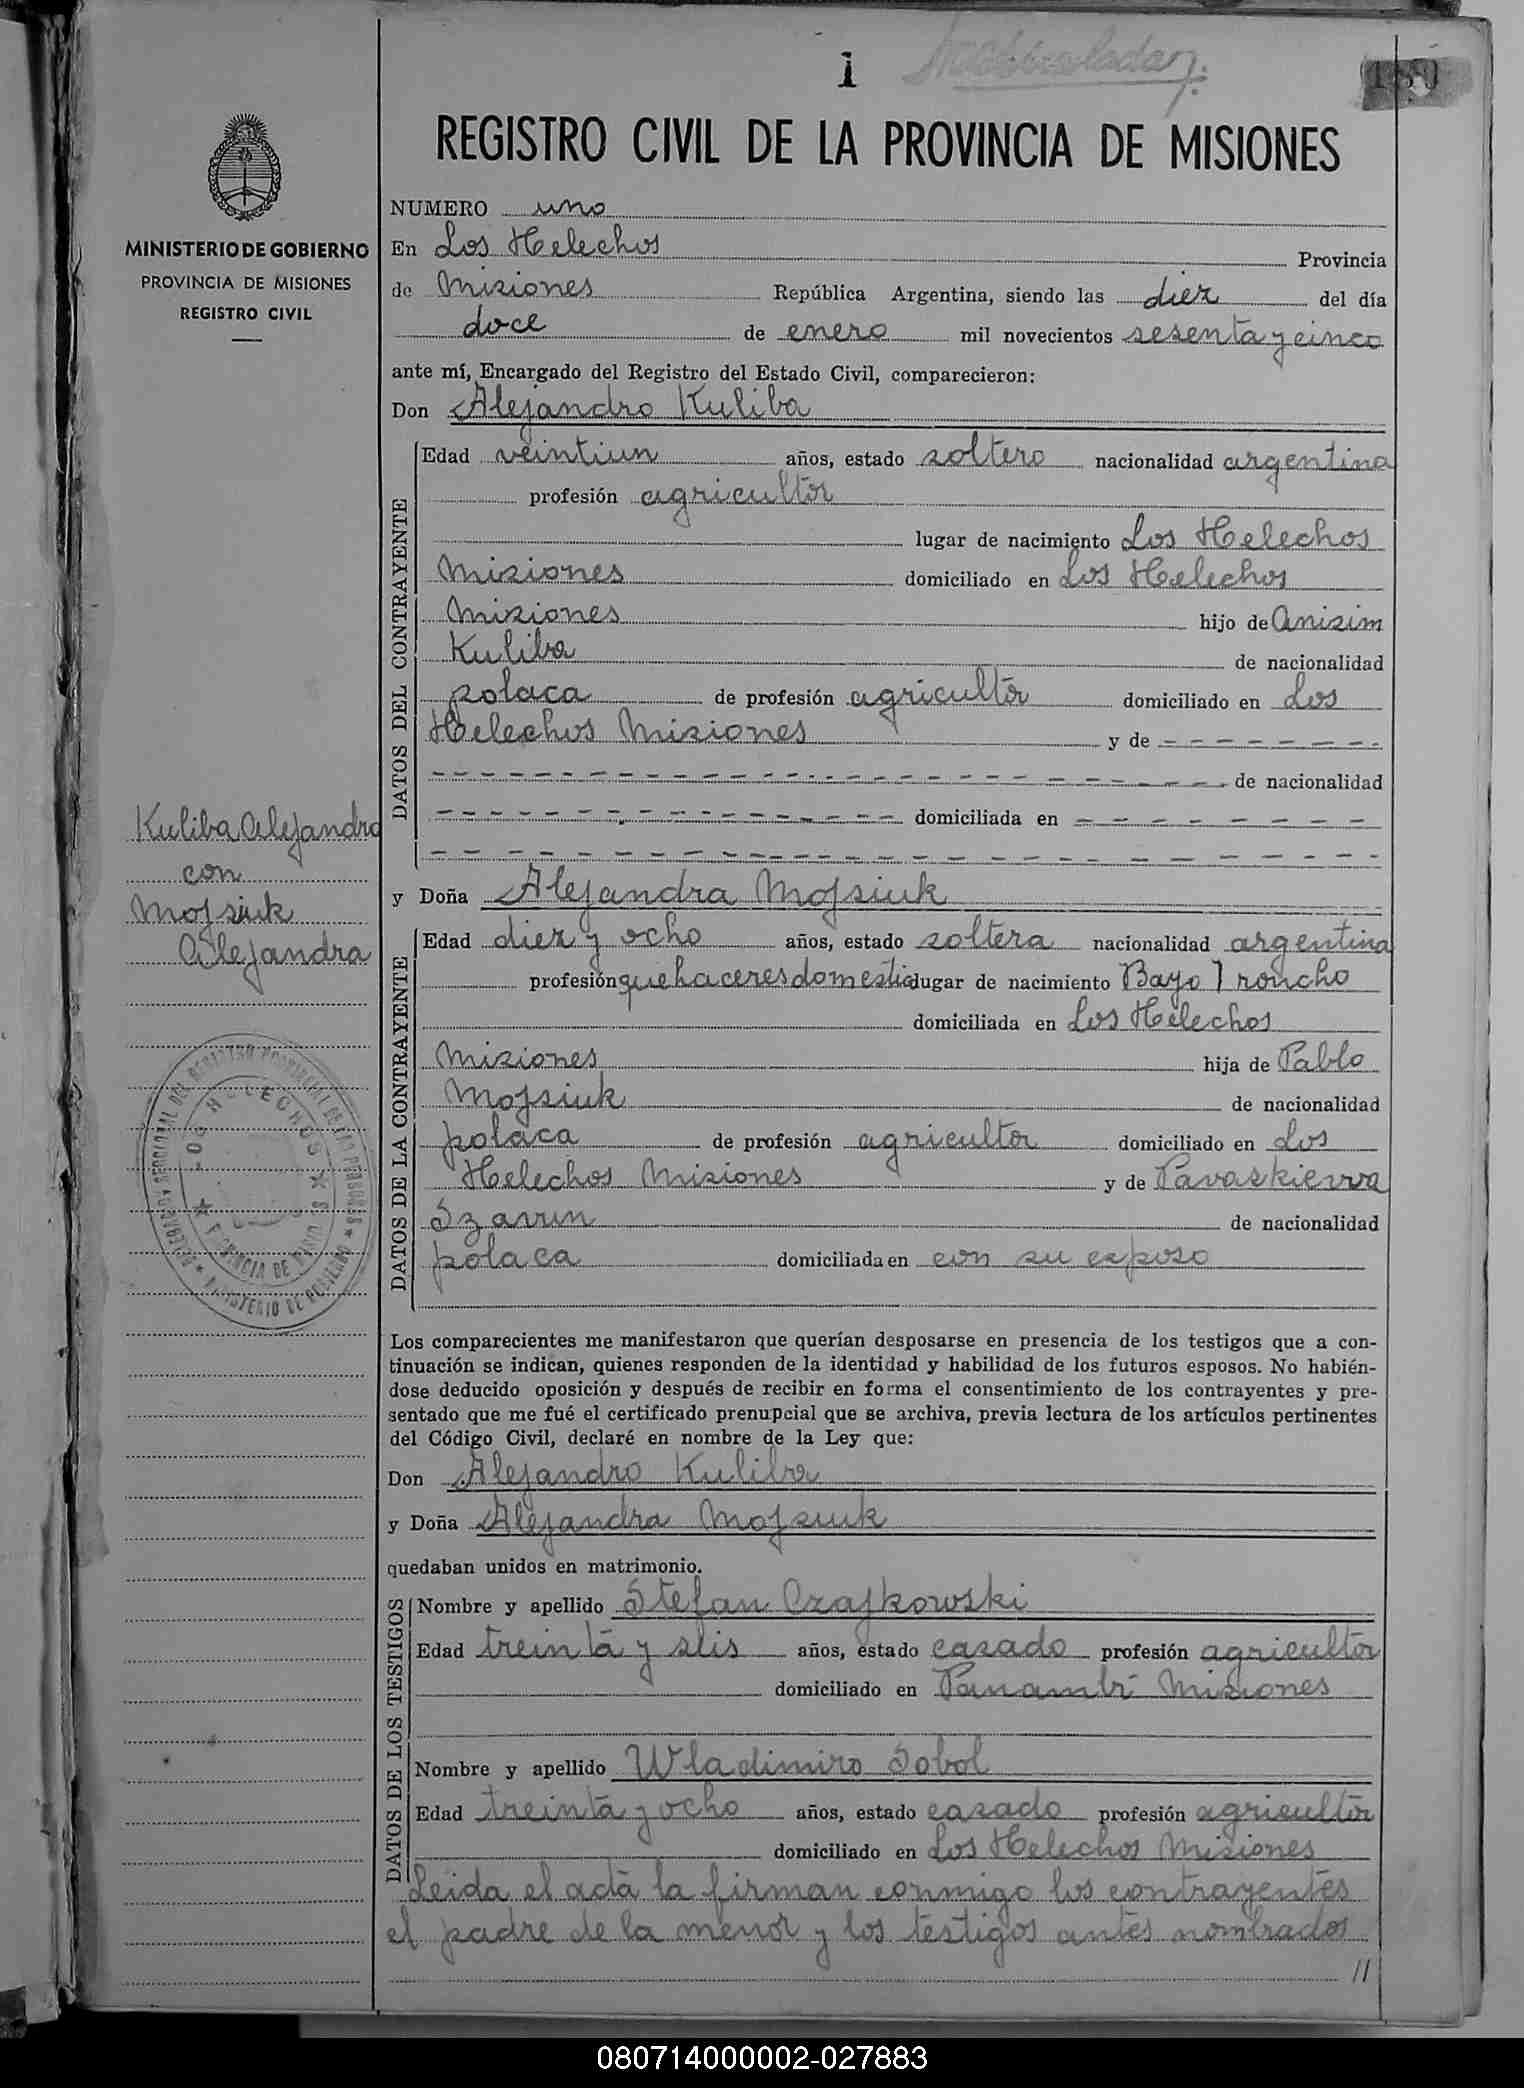 1
REGISTRO CIVIL DE LA PROVINCIA DE MISIONES
MINISTERIO DE GOBIERNO
PROVINCIA DE MISIONES
REGISTRO CIVIL
NUMERO uno
En Los Helechos Provincia
de Misiones República Argentina, siendo las diez del día
doce de enero mil novecientos sesenta y cinco
ante mí, Encargado del Registro del Estado Civil, comparecieron:
Don Alejandro Kuliba
DATOS DEL CONTRAYENTE
Edad veintiun años, estado soltero nacionalidad argentina
profesión agricultor
lugar de nacimiento Los Helechos
Misiones domiciliado en Los Helechos
Misiones hijo de Anisim
Kuliba de nacionalidad
polaca de profesión agricultor domiciliado en Los
Helechos Misiones y de - - - - - - - -
- - - - - - - - - - - - - - - - - - - - de nacionalidad
- - - - - - - - - - - - - - - domiciliada en - - - - - - - -
- - - - - - - - - - - - - - - - - - - - - - - - - -
Kuliba Alejandro
con
Mojsiuk
Alejandra
y Doña Alejandra Mojsiuk
DATOS DE LA CONTRAYENTE
Edad diez y ocho años, estado soltera nacionalidad argentina
profesión quehaceres domestic lugar de nacimiento Bajo Troncho
domiciliada en Los Helechos
Misiones hija de Pablo
Mojsiuk de nacionalidad
polaca de profesión agricultor domiciliado en Los
Helechos Misiones y de
de nacionalidad
polaca domiciliada en con su esposo
LOS HELECHOS
PROVINCIA DE
MINISTERIO DE GOBIERNO
Los comparecientes me manifestaron que querían desposarse en presencia de los testigos que a con-
tinuación se indican, quienes responden de la identidad y habilidad de los futuros esposos. No habién-
dose deducido oposición y después de recibir en forma el consentimiento de los contrayentes y pre-
sentado que me fué el certificado prenupcial que se archiva, previa lectura de los artículos pertinentes
del Código Civil, declaré en nombre de la Ley que:
Don Alejandro Kuliba
y Doña Alejandra Mojsiuk
quedaban unidos en matrimonio.
DATOS DE LOS TESTIGOS
Nombre y apellido Stefan Czajkowski
Edad treinta y seis años, estado casado profesión agricultor
domiciliado en Panambí Misiones
Nombre y apellido Wladimiro Sobol
Edad treinta y ocho años, estado casado profesión agricultor
domiciliado en Los Helechos Misiones
Leida el acta la firman conmigo los contrayentes
el padre de la menor y los testigos antes nombrados
//
080714000002-027883